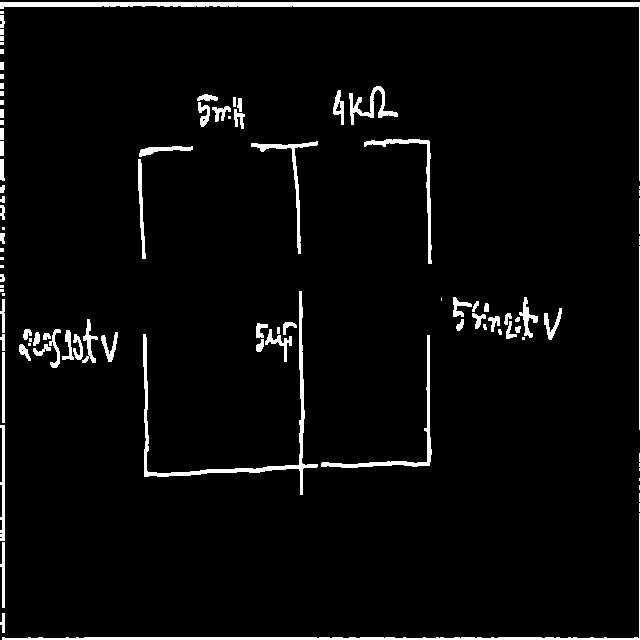 5mH
4KΩ
2cos10t V
5µF
5sin2t V